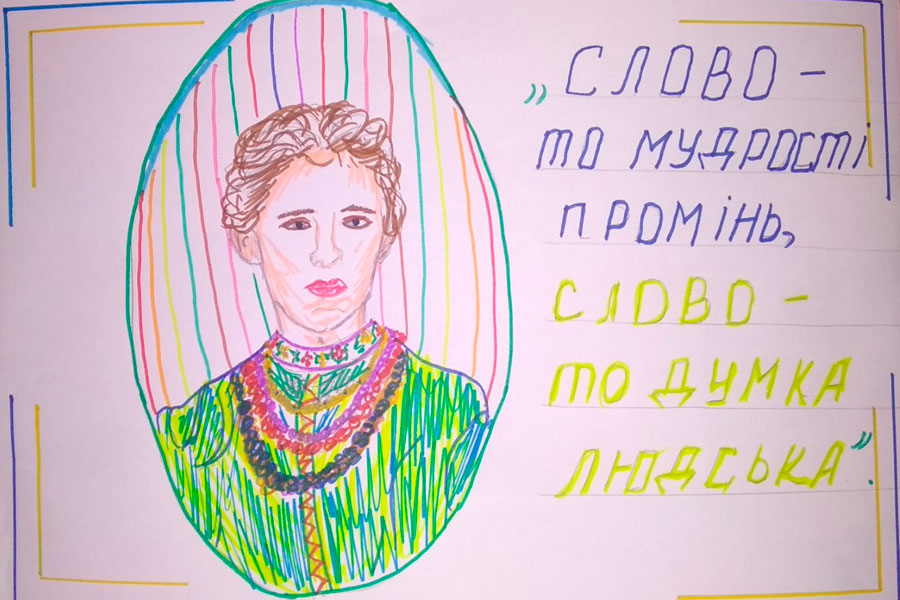 „СЛОВО –
ТО МУДРОСТІ
ПРОМІНЬ,
СЛОВО –
ТО ДУМКА
ЛЮДСЬКА”.